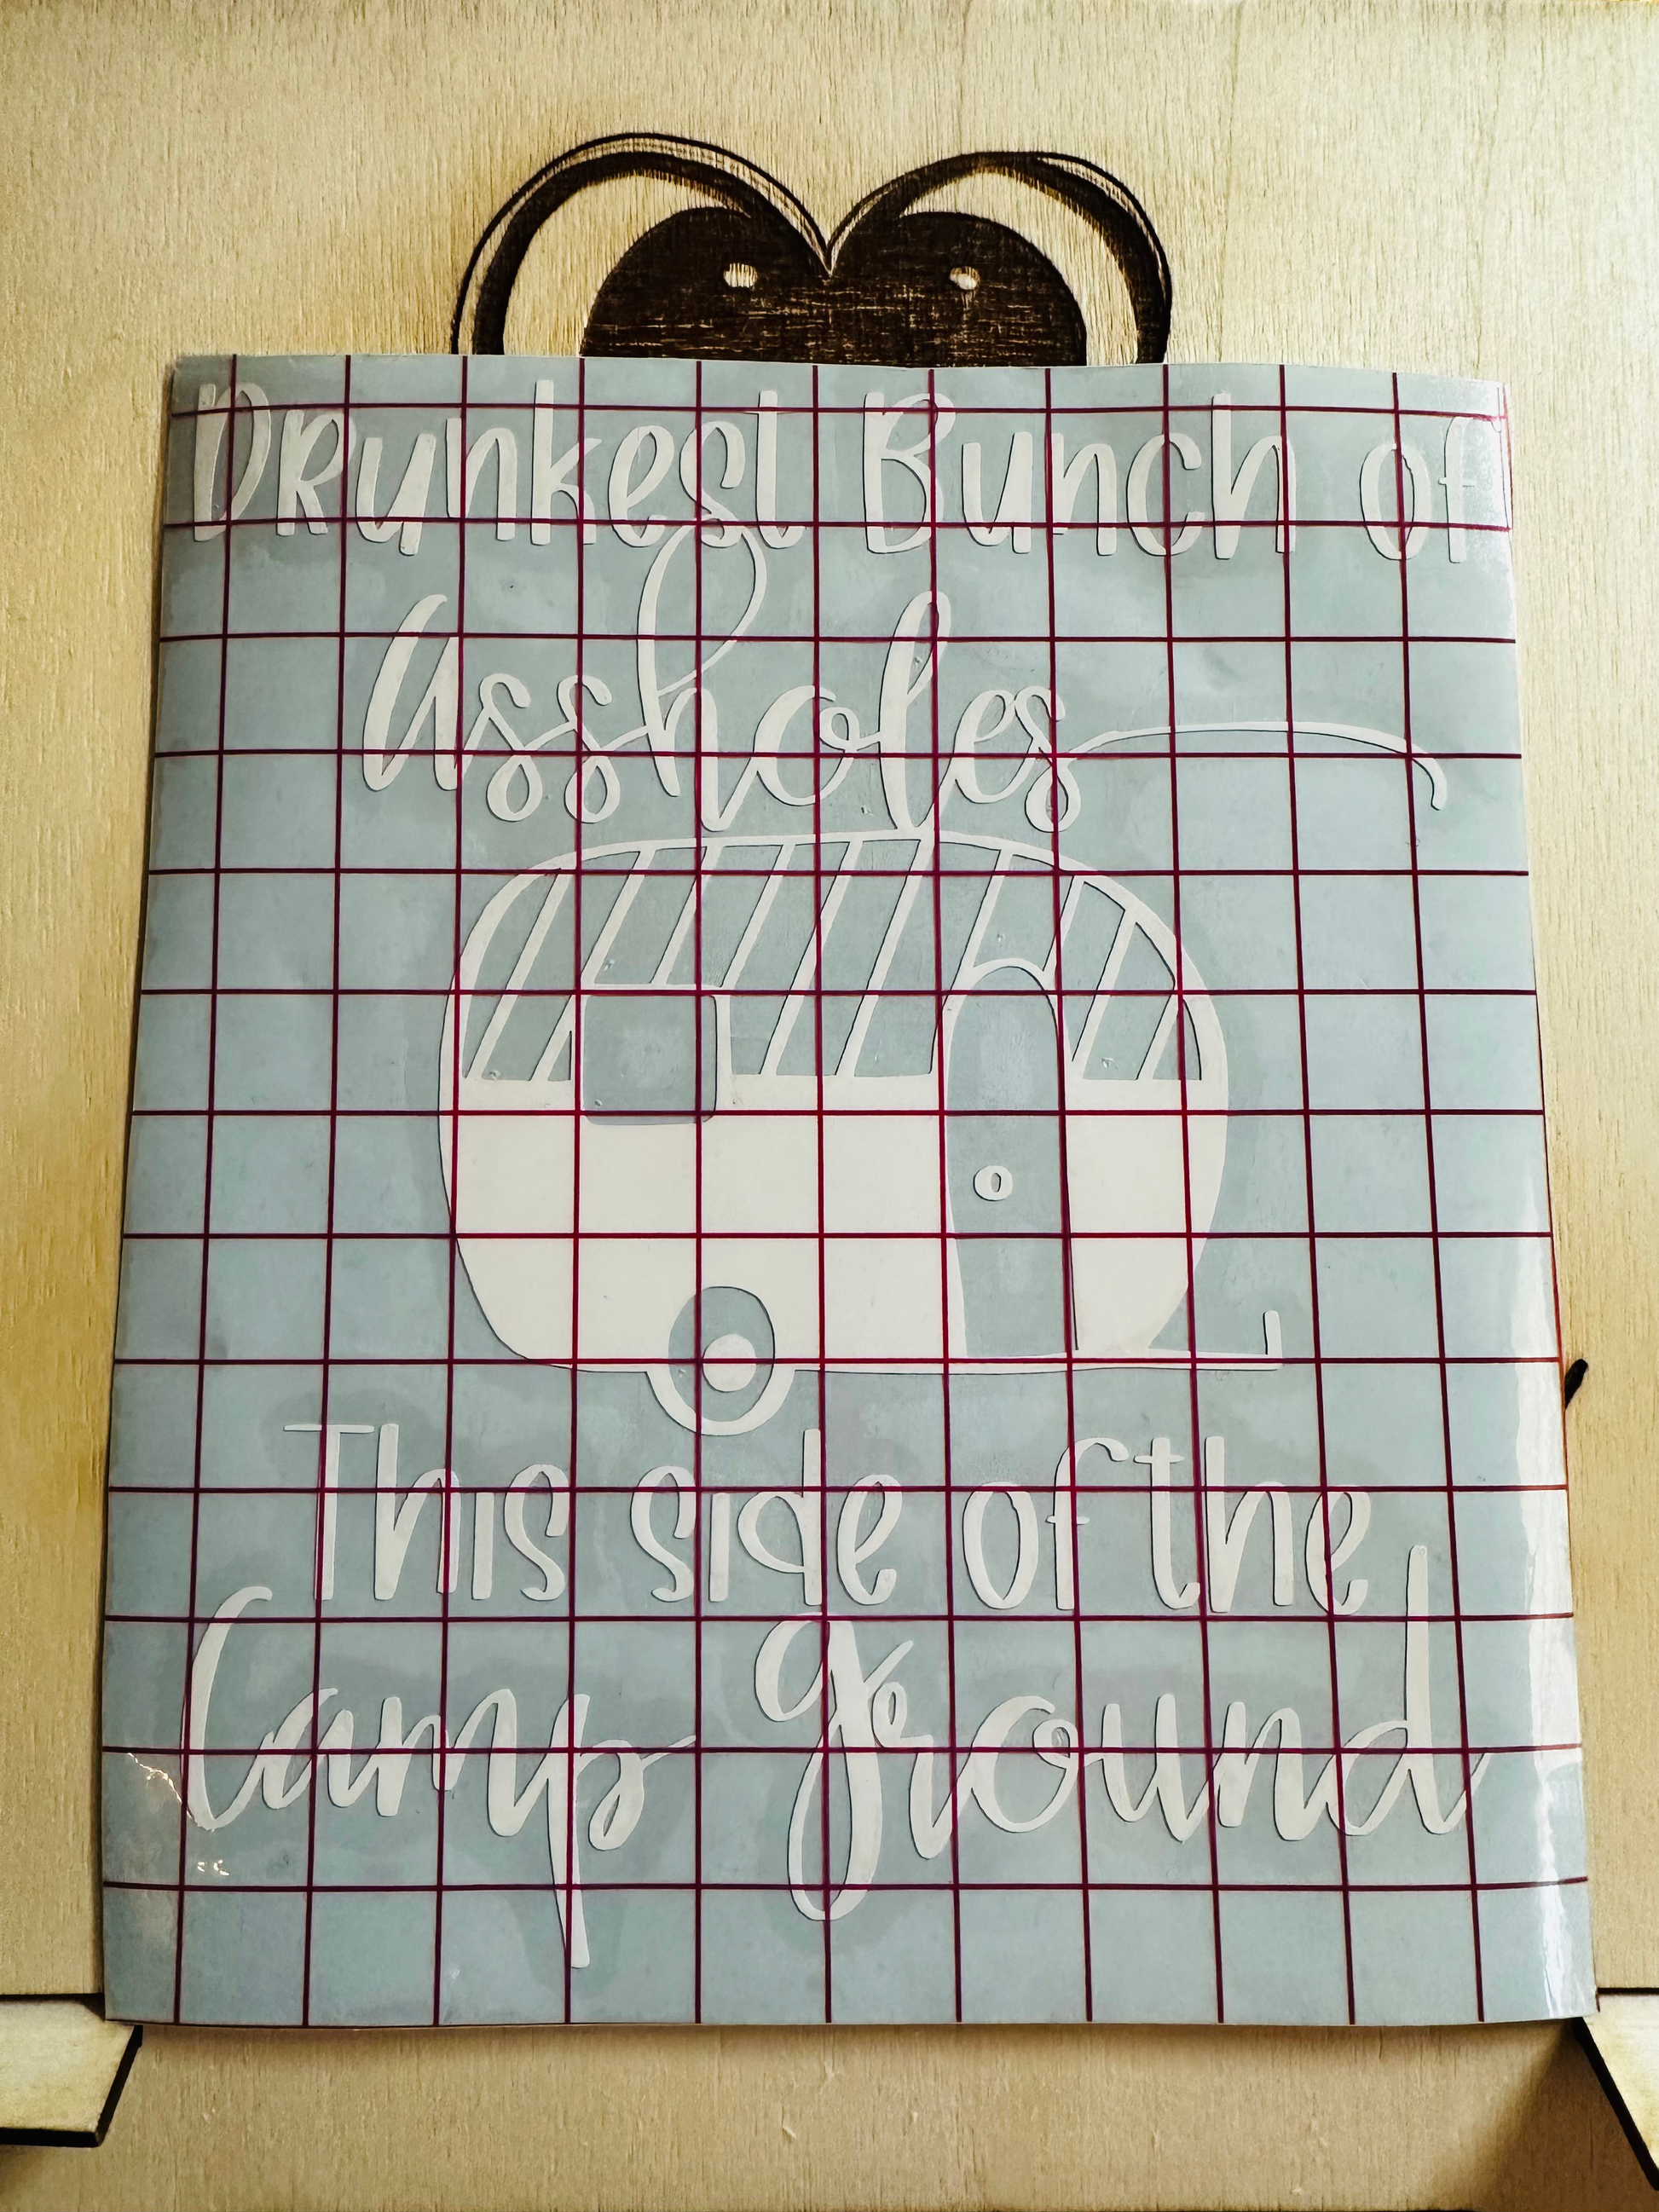 Drunkest Bunch of
Assholes
This side of the
Camp ground